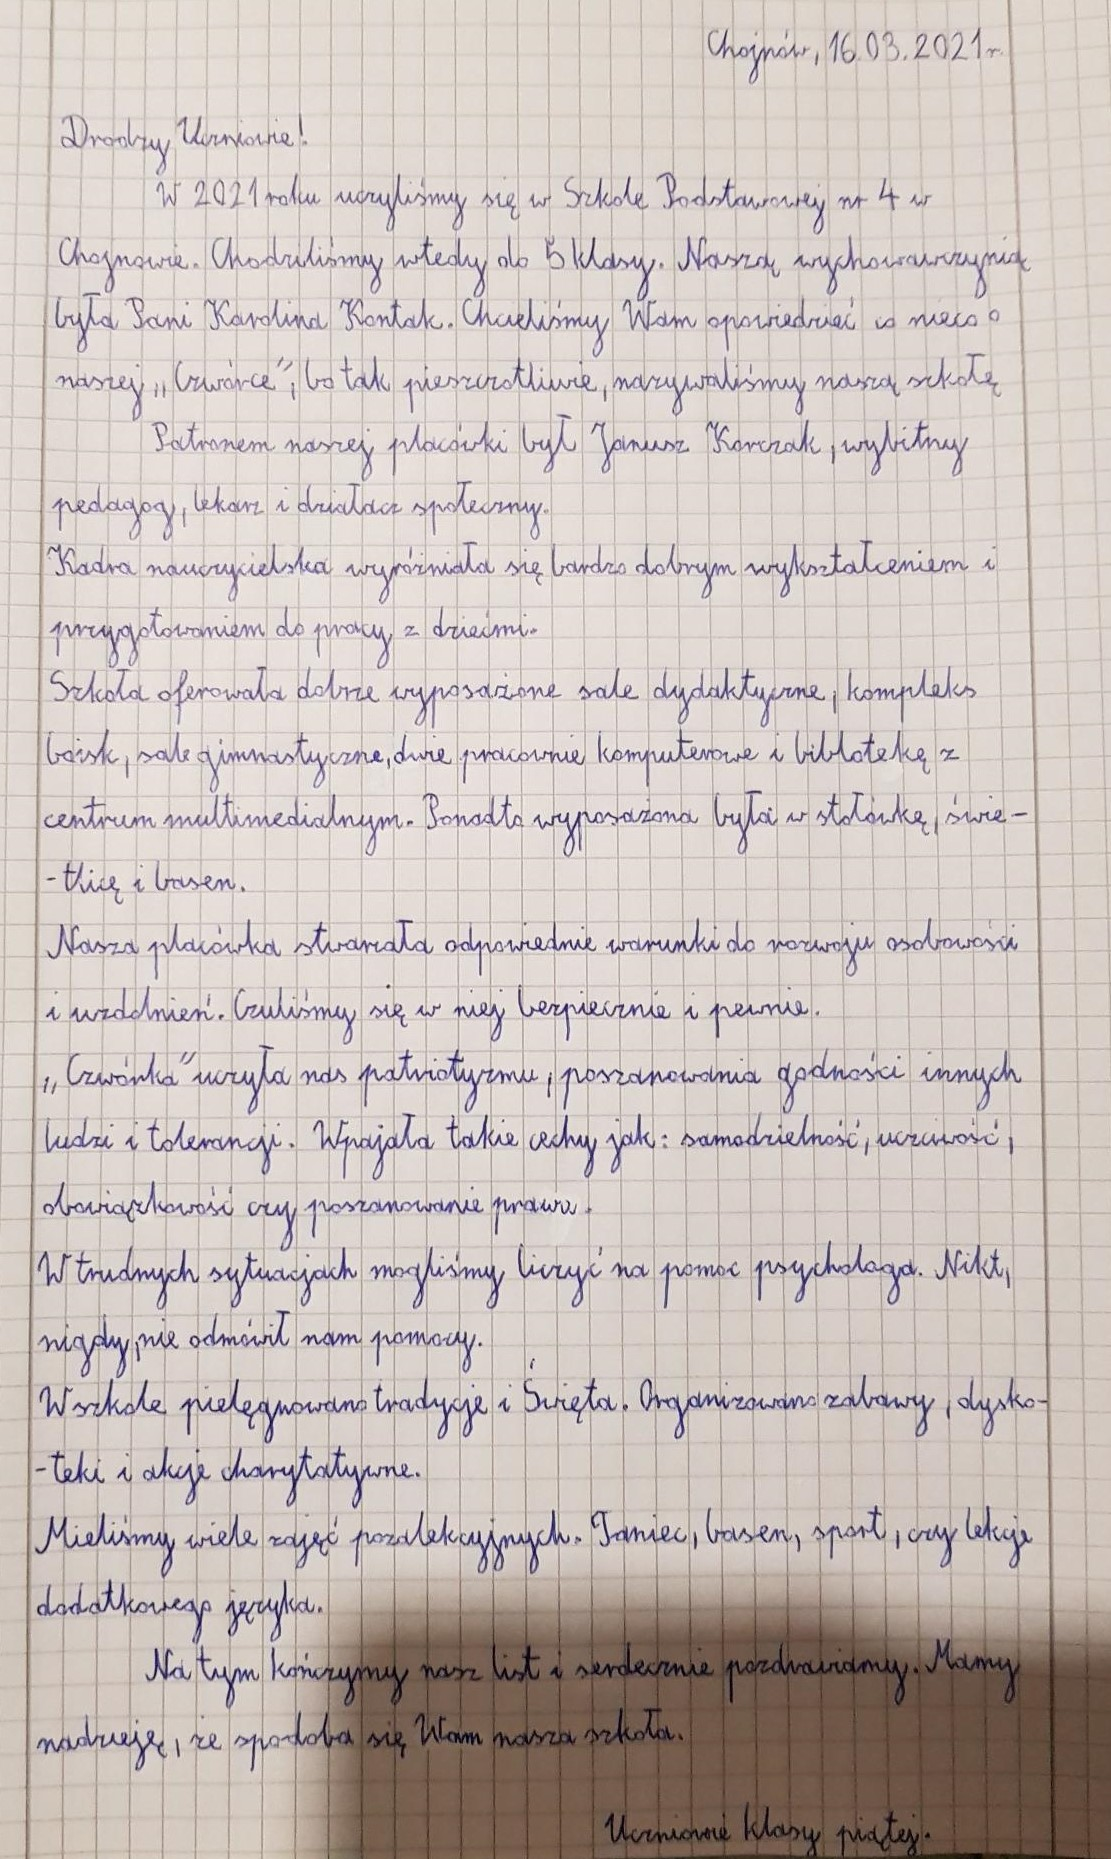 Chojnów, 16.03.2021r.
Drodzy Uczniowie!
W 2021 roku uczyliśmy się w Szkole Podstawowej nr 4 w
Chojnowie. Chodziliśmy wtedy do 5 klasy. Naszą wychowawczynią
była Pani Karolina Kontak. Chcieliśmy Wam opowiedzieć co nieco o
naszej „Czwórce”, bo tak pieszczotliwie, nazywaliśmy naszą szkołę
Patronem naszej placówki był Janusz Korczak, wybitny
pedagog, lekarz i działacz społeczny.
Kadra nauczycielska wyróżniała się bardzo dobrym wykształceniem i
przygotowaniem do pracy z dziećmi.
Szkoła oferowała dobrze wyposażone sale dydaktyczne, kompleks
boisk, sale gimnastyczne, dwie pracownie komputerowe i bibliotekę z
centrum multimedialnym. Ponadto wyposażona była w stołówkę, świe-
-tlicę i basen.
Nasza placówka stwarzała odpowiednie warunki do rozwoju osobowości
i uzdolnień. Czuliśmy się w niej bezpiecznie i pewnie.
„Czwórka” uczyła nas patriotyzmu, poszanowania godności innych
ludzi i tolerancji. Wpajała takie cechy jak: samodzielność, uczciwość,
obowiązkowość czy poszanowanie prawa.
W trudnych sytuacjach mogliśmy liczyć na pomoc psychologa. Nikt,
nigdy, nie odmówił nam pomocy.
W szkole pielęgnowano tradycje i Święta. Organizowano zabawy, dysko-
-teki i akcje charytatywne.
Mieliśmy wiele zajęć pozalekcyjnych. Taniec, basen, sport, czy lekcje
dodatkowego języka.
Na tym kończymy nasz list i serdecznie pozdrawiamy. Mamy
nadzieję, że spodoba się Wam nasza szkoła.
Uczniowie klasy piątej.